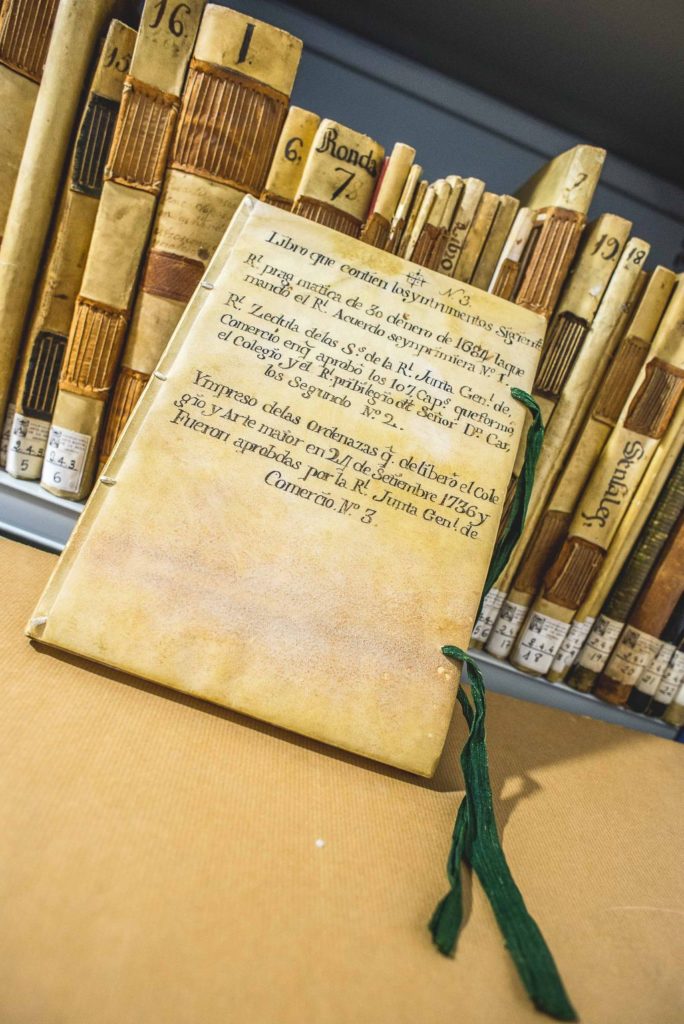 16.
1
15
6.
Ronda
7.
7
19.
18
N. 3.
Libro que contien los yntrumentos Sigien.
Rl. prag matica de 30 de nero de 1684 la que
mandó el Rl. Acuerdo se ynprimiera No. 1.
Rl. Zedula de las Ss. de la Rl. Junta Genl. de
Comercio enq̃. aprobó los 107 Caps. que formó
el Colegio y el Rl. pribilegio de Señor Dn. Car,
los Segundo No. 2.
Ympreso de las Ordenazas q̃. de libero el Cole
gio y Arte maior en 24 de Señiembre 1736 y
Fueron aprobdas por la Rl. Junta Genl. de
Comercio. No. 3.
2.4.3
5
2.4.3
6
18
19